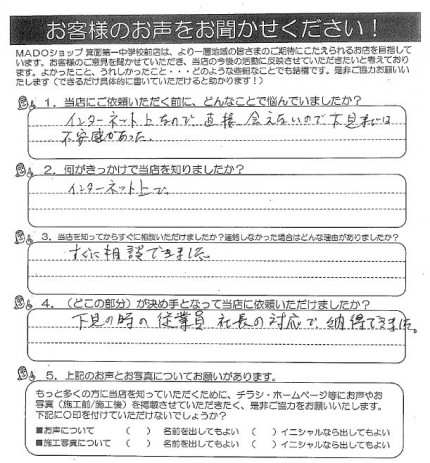 お客様のお声をお聞かせください！
MADOショップ 箕面第一中学校前店は、より一層地域の皆さまのご期待にこたえられるお店を目指して
います。お客様のご意見を聞かせていただき、当店の今後の活動に反映させていただきたいと考えており
ます。よかったこと、うれしかったこと・・・どのような些細なことでも結構です。是非ご協力お願いい
たします（できるだけ具体的に書いていただけると助かります！）
1．当店にご依頼いただく前に、どんなことで悩んでいましたか？
インターネット上なので、直接会えないので下見までは
不安感があった。
2．何がきっかけで当店を知りましたか？
インターネット上で。
3．当店を知ってからすぐに相談いただけましたか？連絡しなかった場合はどんな理由がありましたか？
すぐに相談できました
4．（どこの部分）が決め手となって当店に依頼いただけましたか？
下見の時の従業員 社長の対応で、納得できました。
5．上記のお声とお写真についてお願いがあります。
もっと多くの方に当店を知っていただくために、チラシ・ホームページ等にお声やお
写真（施工前/施工後）を掲載させていただきたく、是非ご協力をお願いいたします。
下記に○印を付けていただけないでしょうか？
■お声について （ ） 名前を出してもよい （ ）イニシャルなら出してもよい
■施工写真について （ ） 名前を出してもよい （ ）イニシャルなら出してもよい